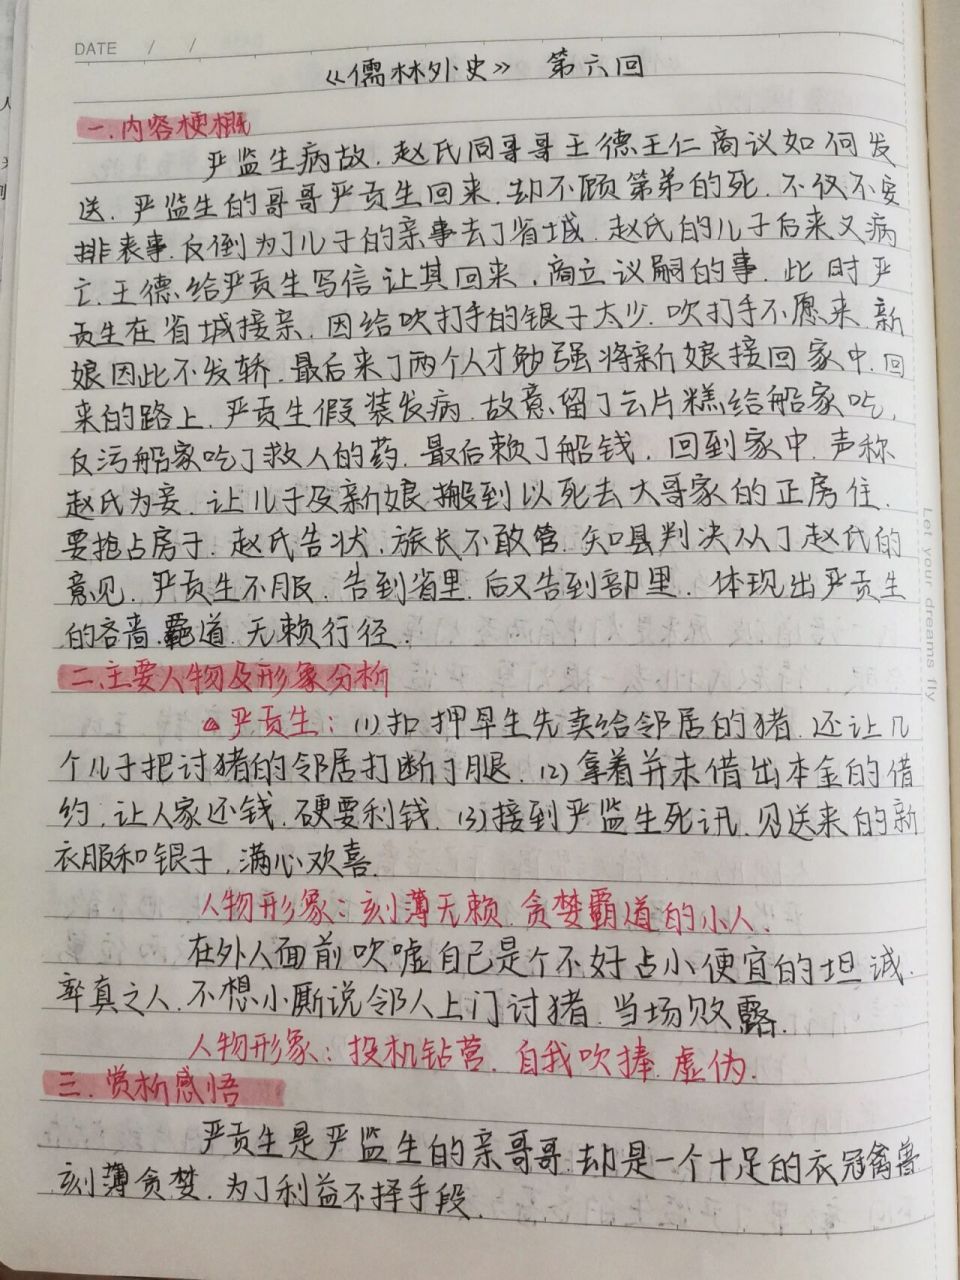 DATE / /
《儒林外史》 第六回
一.内容梗概
严监生病故.赵氏同哥哥王德王仁商议如何发
送.严监生的哥哥严贡生回来.却不顾第弟的死.不仅不安
排丧事.反倒为了儿子的亲事去了省城.赵氏的儿子后来又病
亡.王德给严贡生写信让其回来,商立议嗣的事.此时严
贡生在省城接亲.因给吹打手的银子太少.吹打手不愿来.新
娘因此不发轿.最后来了两个人才勉强将新娘接回家中.回
来的路上.严贡生假装发病.故意留了云片糕给船家吃,
反污船家吃了救人的药.最后赖了船钱.回到家中.声称
赵氏为妾.让儿子及新娘搬到以死去大哥家的正房住.
要抢占房子.赵氏告状.族长不敢管.知县判决从了赵氏的
意见.严贡生不服.告到省里.后又告到部里.体现出严贡生
的吝啬.霸道.无赖行径.
二.主要人物及形象分析
严贡生:(1)扣押早生先卖给邻居的猪.还让几
个儿子把讨猪的邻居打断了腿.(2)拿着并未借出本金的借
约.让人家还钱.硬要利钱.(3)接到严监生死讯.见送来的新
衣服和银子,满心欢喜.
人物形象:刻薄无赖.贪婪霸道的小人.
在外人面前吹嘘自己是个不好占小便宜的坦诚.
率真之人.不想小厮说邻人上门讨猪.当场败露.
人物形象:投机钻营.自我吹捧.虚伪.
三.赏析感悟
严贡生是严监生的亲哥哥.却是一个十足的衣冠禽兽
刻薄贪婪.为了利益不择手段.
Let your dreams fly